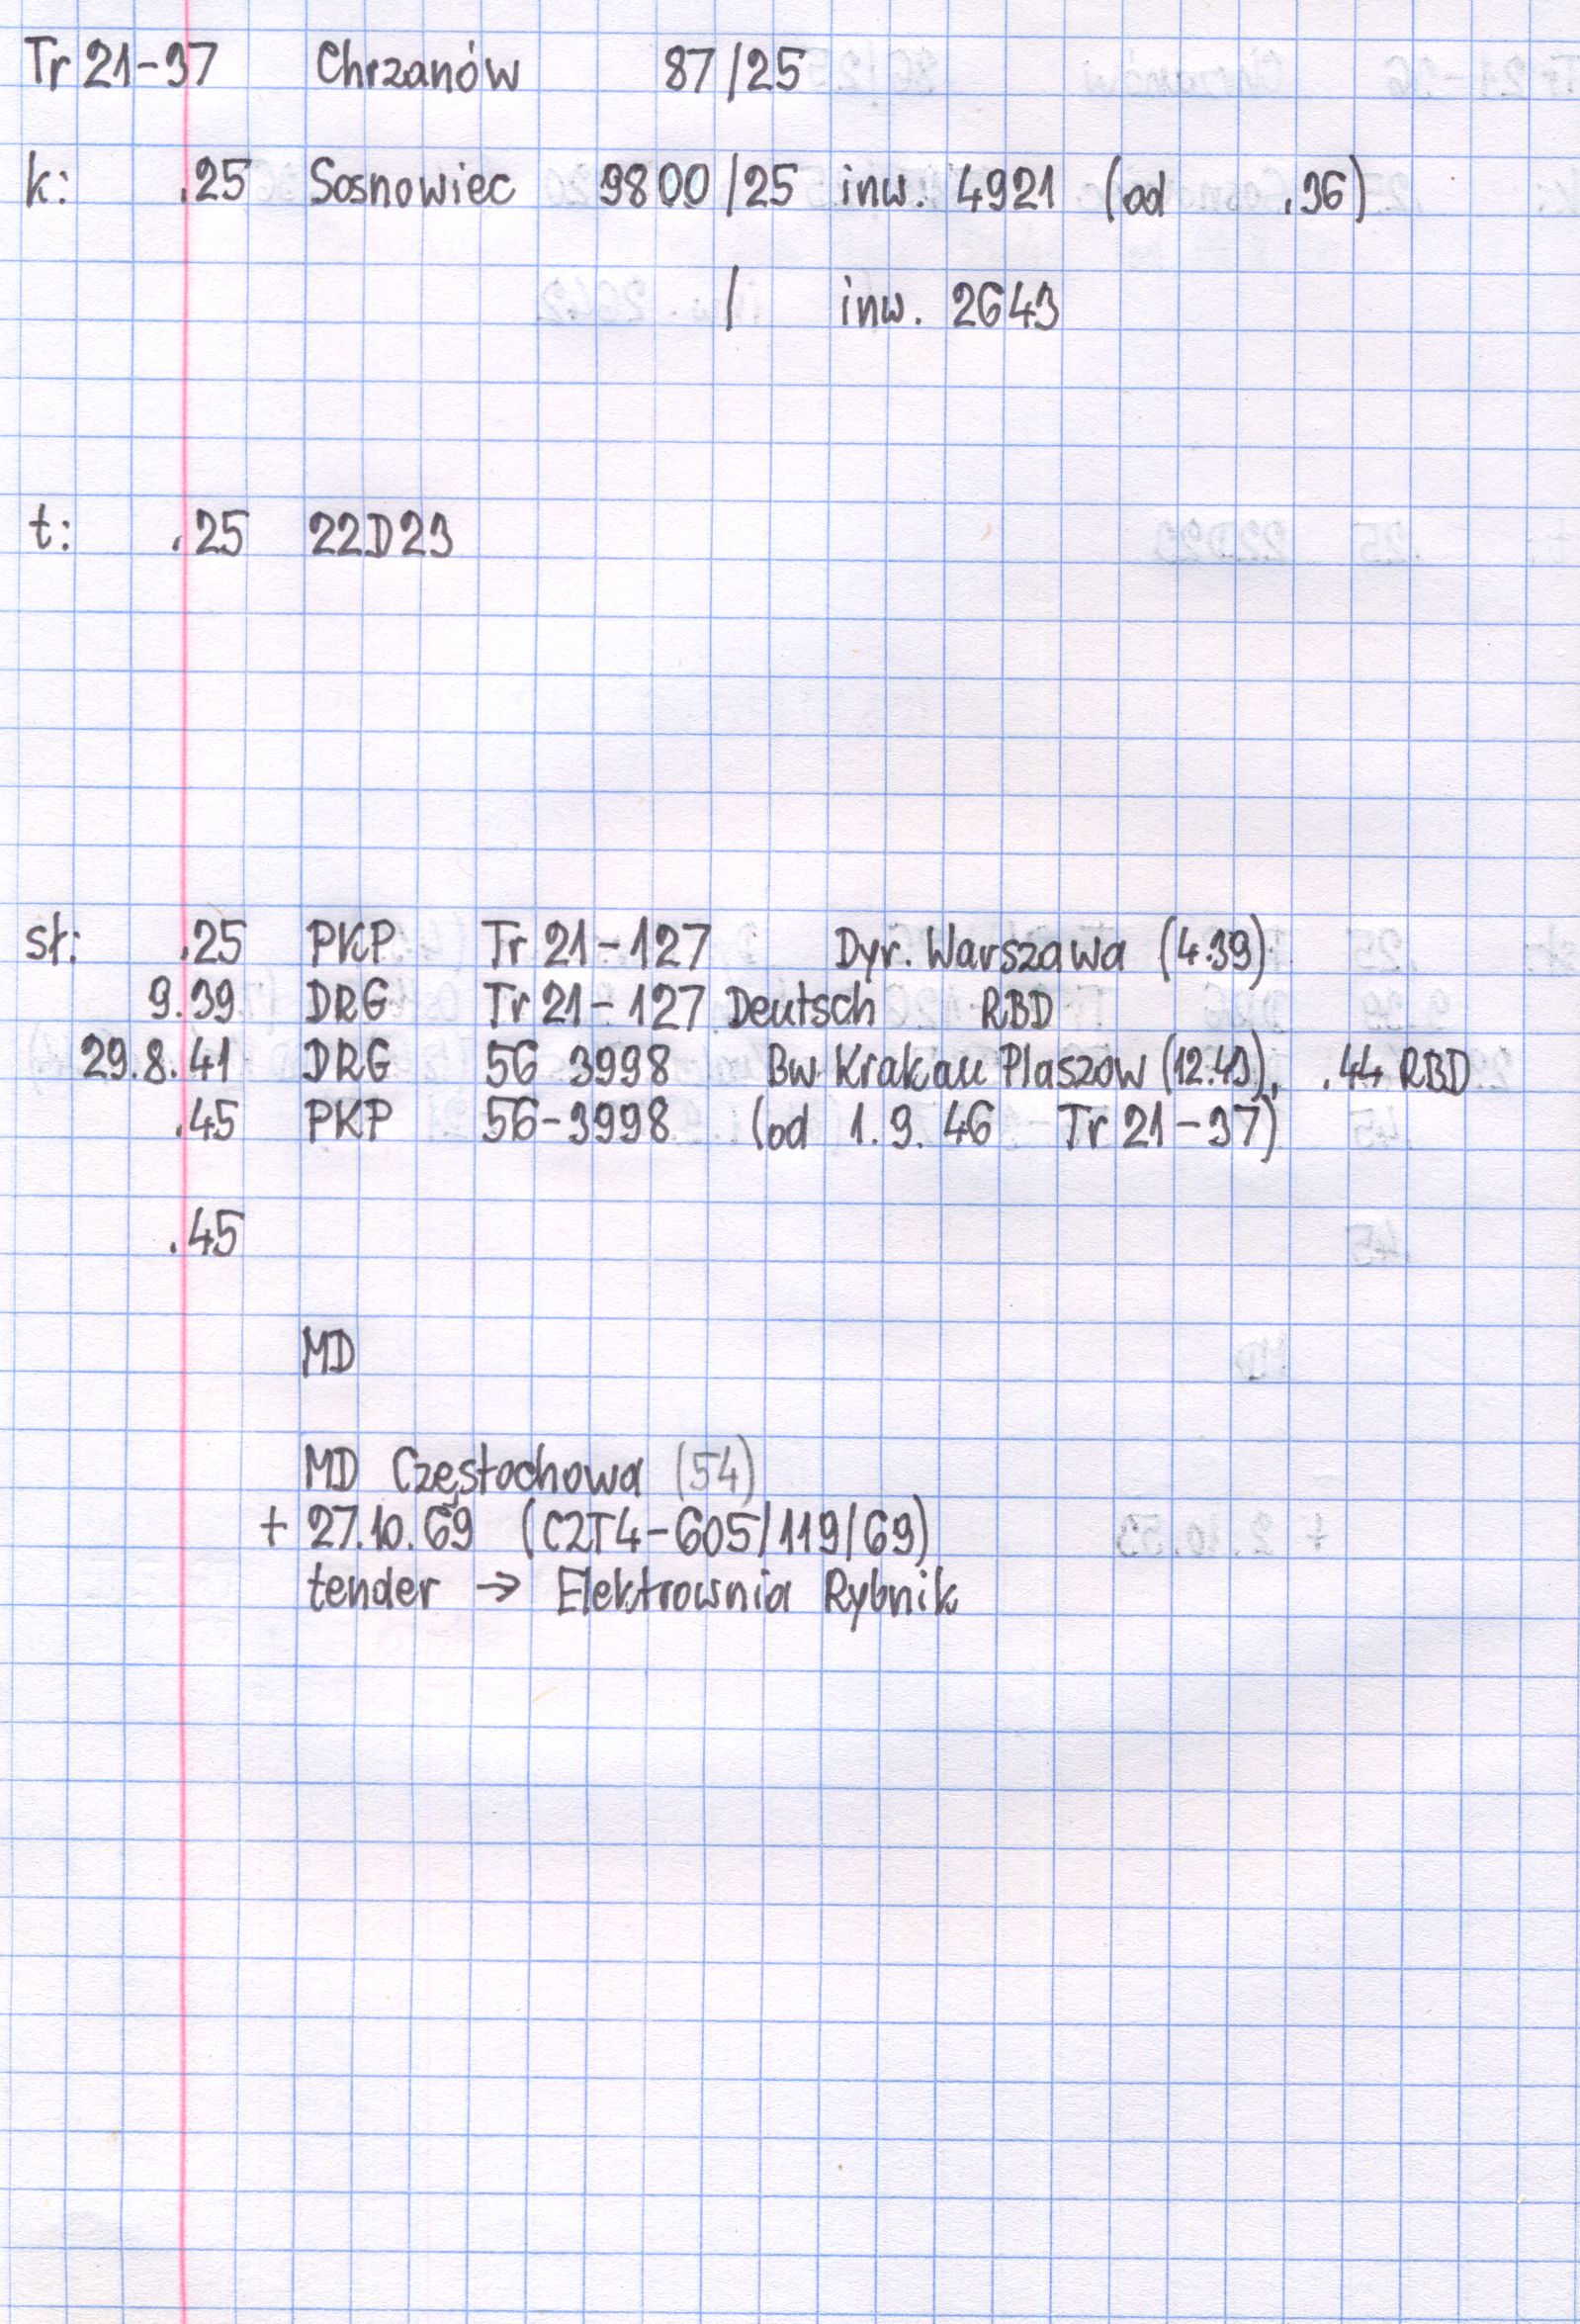 Tr 21-37 Chrzanów 87/25
k: .25 Sosnowiec 9800/25 inw. 4921 (od .36)
/ inw. 2643
t: .25 22D23
sł: .25 PKP Tr 21-127 Dyr. Warszawa (4.39)
9.39 DRG Tr 21-127 Deutsch RBD
29.8.41 DRG 56 3998 Bw Krakau Plaszow (12.43), .44 RBD
.45 PKP 56-3998 (od 1.9.46 Tr 21-37)
.45
MD
MD Częstochowa (54)
+ 27.10.69 (C2T4-605/119/69)
tender → Elektrownia Rybnik